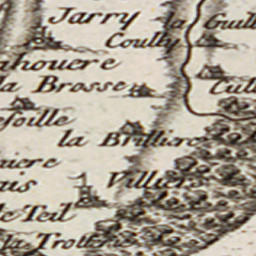 Jarry
la Guill
Coully
ahouere
la Brosse
Cul
esoille
la Brilliere
niere
ais
Villiers
le Teil
la Trotterie